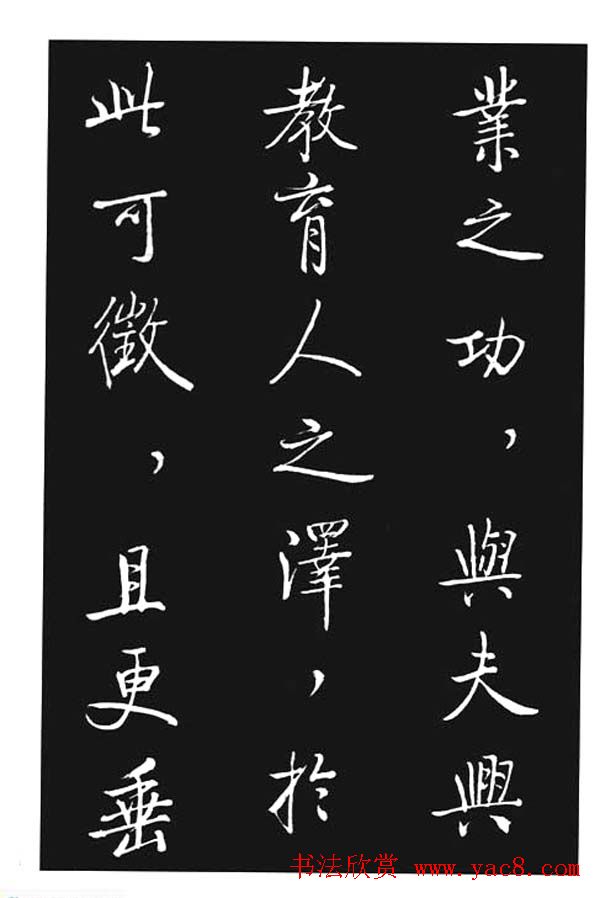 業之功，與夫興
教育人之澤，於
此可徵，且更垂
书法欣赏 www.yac8.com